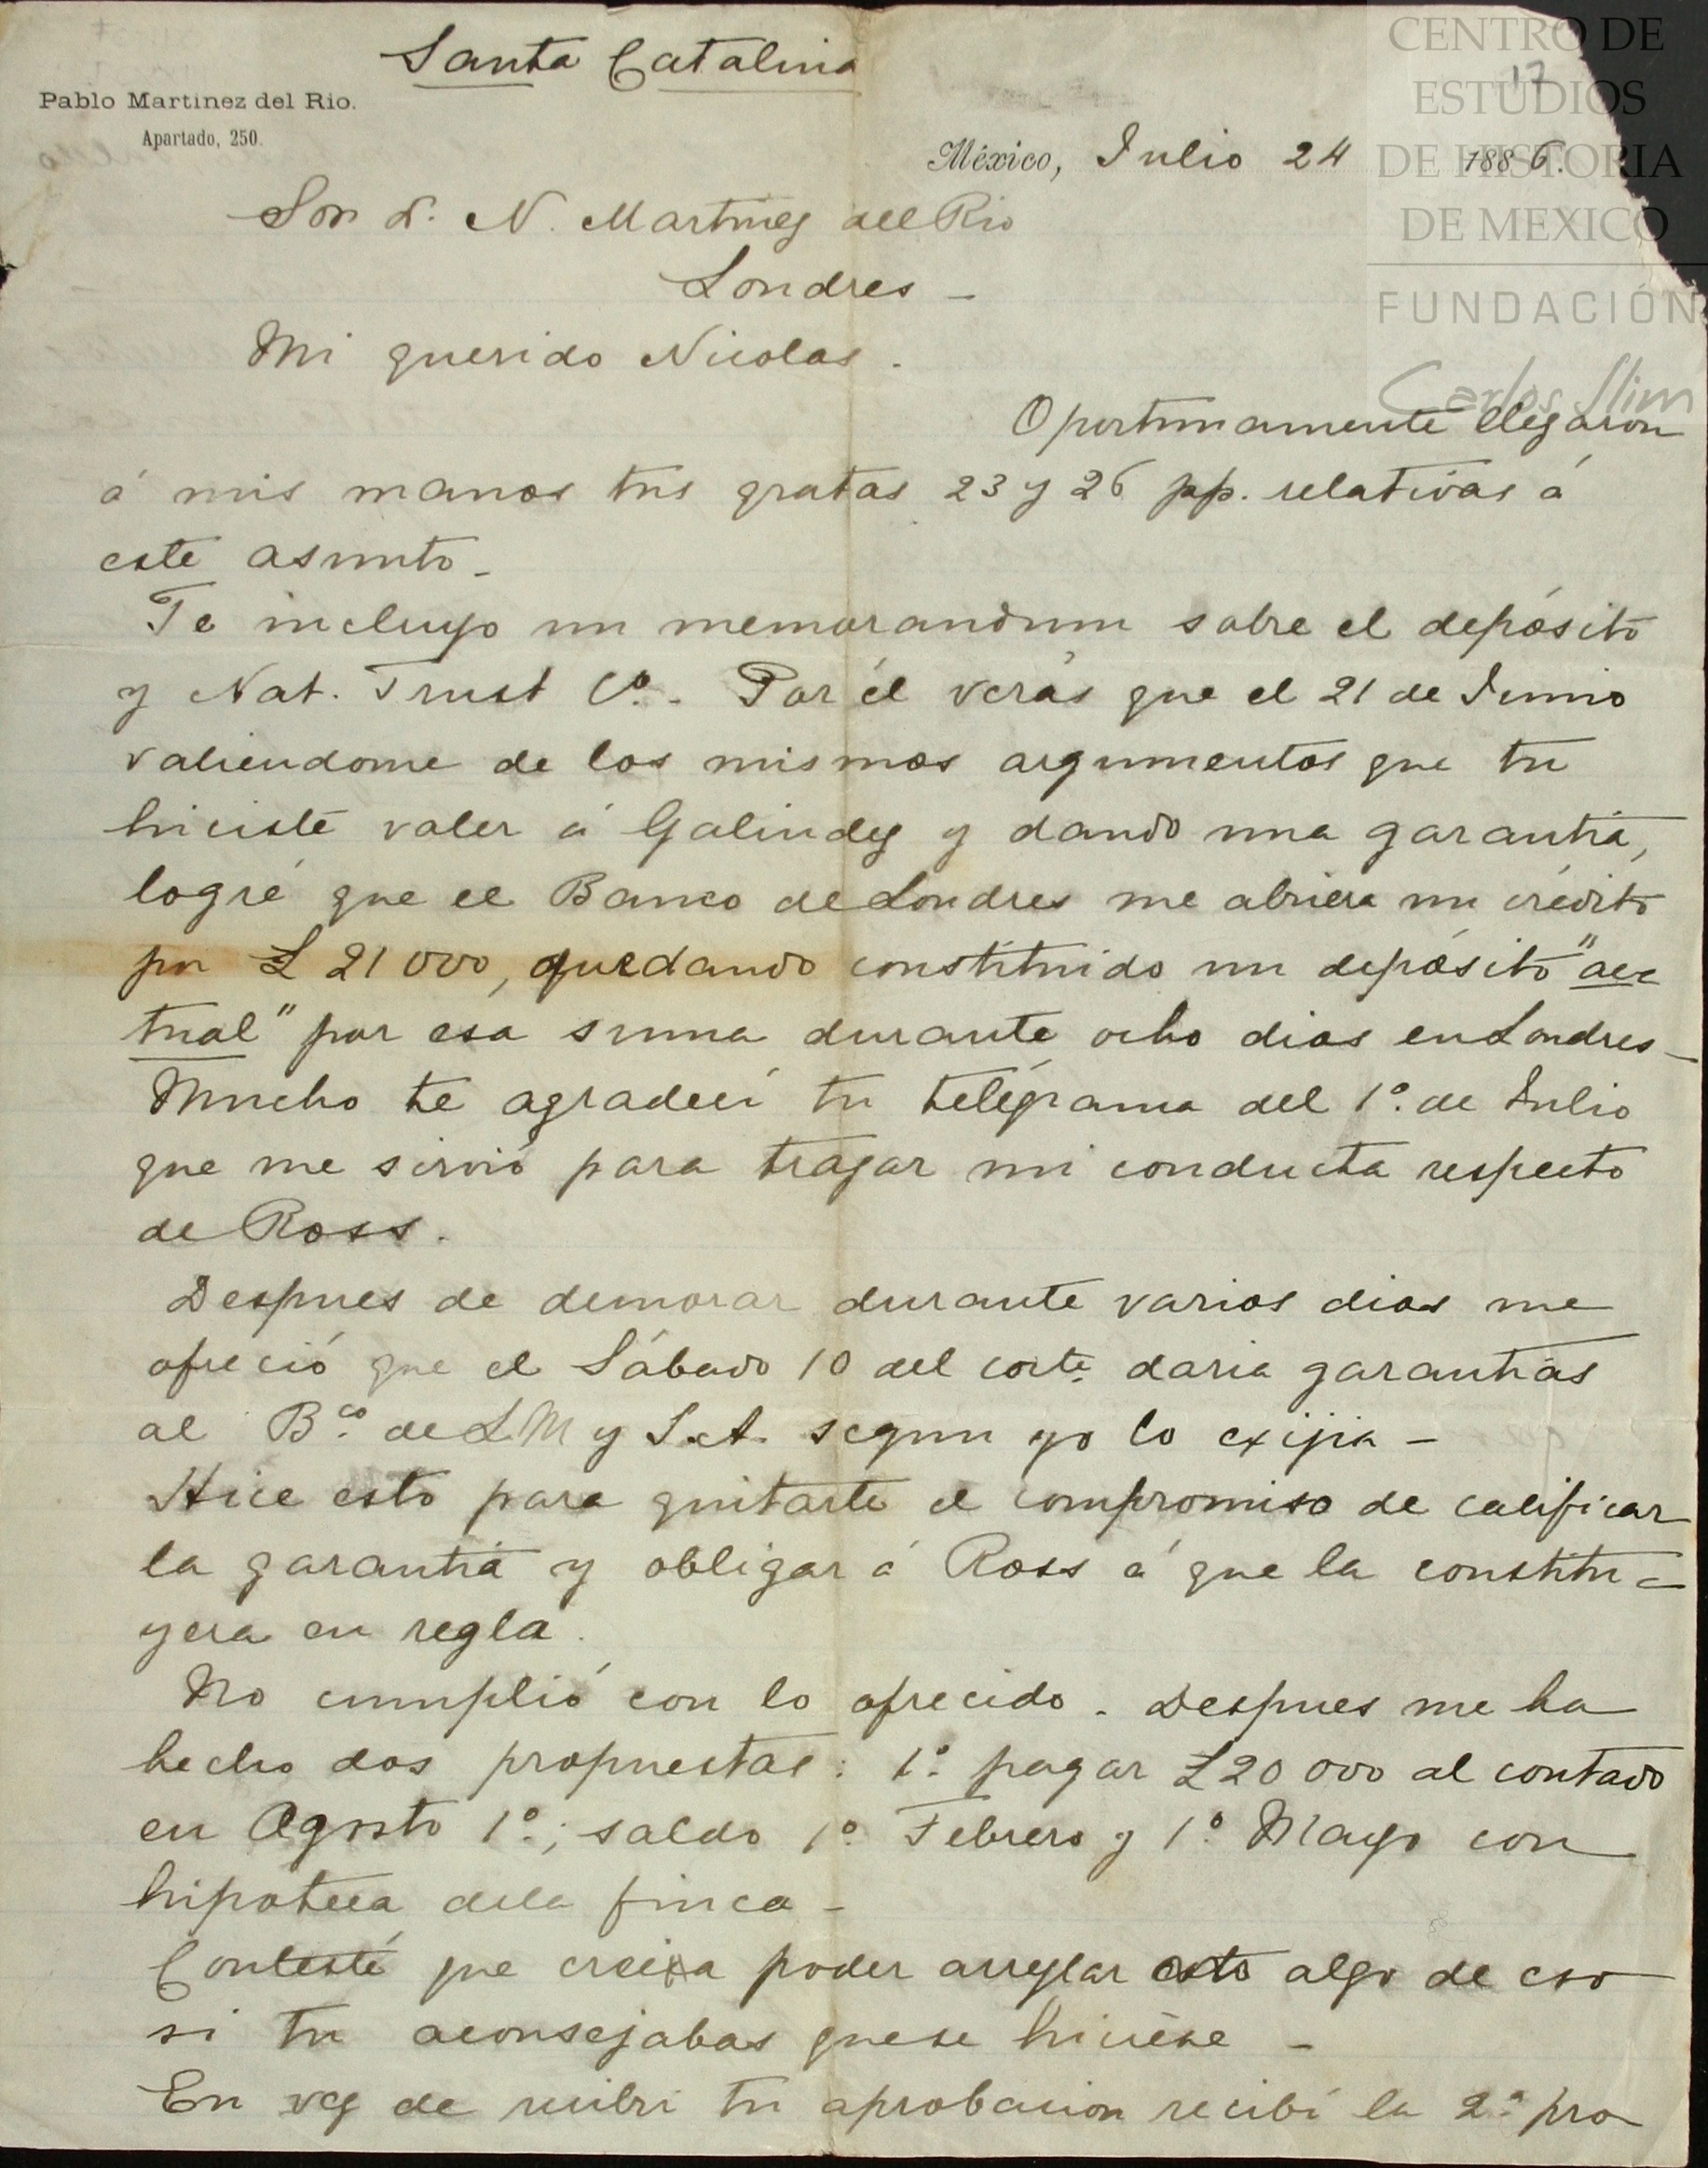 Santa Catalina
17
Pablo Martinez del Rio.
Apartado, 250.
México, Julio 24 1886.
Sor D. N. Martinez del Rio
Londres -
Mi querido Nicolas.
Oportunamente llegaron
á mis manos tus gratas 23 y 26 pp. relativas á
este asunto -
Te incluyo un memorandum sobre el depósito
y Nat. Trust Co. - Por él verás que el 21 de Junio
valiendome de los mismos argumentos que tu
hiciste valer á Galindez y dando una garantía,
logré que el Banco de Londres me abriera un crédito
por £ 21 000, quedando constituido un depósito "ac=
tual" por esa suma durante ocho dias en Londres -
Mucho te agradecí tu telégrama del 1º. de Julio
que me sirvió para trazar mi conducta respecto
de Ross.
Despues de demorar durante varios dias me
ofreció que el Sábado 10 del corte. daria garantías
al Bco. de L M y S.A. segun yo lo exijia -
Hice esto para quitarte el compromiso de calificar
la garantía y obligar á Ross á que la constitu=
yera en regla.
No cumplió con lo ofrecido. Despues me ha
hecho dos propuestas: 1º. pagar £20 000 al contado
en Agosto 1º.; saldo 1º. Febrero y 1º. Mayo con
hipoteca dela finca -
Contesté que creia poder arreglar esto algo de eso
si tu aconsejabas quese hiciése -
En vez de recibir tu aprobacion recibí la 2ª. pro
CENTRO DE
ESTUDIOS
DE HISTORIA
DE MEXICO
FUNDACIÓN
Carlos Slim